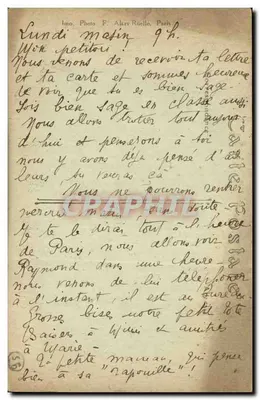 Imp. Phot. F. Paris
Lundi matin 9h.
Mon petitou !
Nous venons de recevoir ta lettre
et ta carte et sommes heureux
de voir que tu es bien sage.
Sois bien sage en classe aussi
Nous allons trotter tout aujour
d'hui et penserons à toi
nous y avons déjà pensé d'ail
leurs tu verras ça
Nous ne pourrons rentrer
mercredi
Je te le dirai tout à l'heure
de Paris, nous allons voir
Raymond dans une heure
nous venons de lui téléphoner
à l'instant, il est au bureau
Grosse bise notre petit
Baisers à Mimi et amitiés
à Marie
Ta petite maman, qui pense
bien à sa "rapouille" !
CARTAPRO